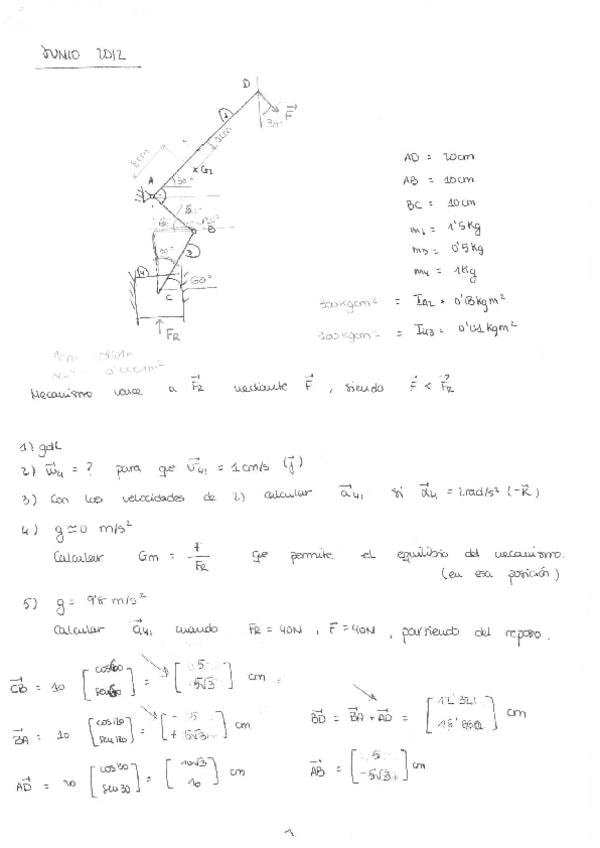 JUNIO 2012
D
30°
F
2
8cm
2cm
x G2
A
30°
B
3
60°
4
C
FR
AD = 20cm
AB = 10cm
BC = 10cm
m2 = 1'5 kg
m3 = 0'5 kg
m4 = 1kg
300 kgcm² = IG2 = 0'03 kgm²
100 kgcm² = IG3 = 0'01 kgm²
Mecanismo vence a FR mediante F, siendo F < FR
1) gdL
2) = ? para que v41 = 1 cm/s (j)
3) Con las velocidades de 2) calcular a41 si = 2 rad/s² (-k)
4) g ≃ 0 m/s²
Calcular Gm = F/FR que permite el equilibrio del mecanismo.
(en esa posición)
5) g = 9'8 m/s²
Calcular a41 cuando FR = 40N, F = 40N, partiendo del reposo.
CB = 10 [cos60 sen60] = [5 5√3] cm
BA = 10 [cos120 sen120] = [-5 +5√3] cm
BD = BA + AD = cm
AD = 20 [cos30 sen30] = [10√3 10] cm
AB = [5 -5√3] cm
1